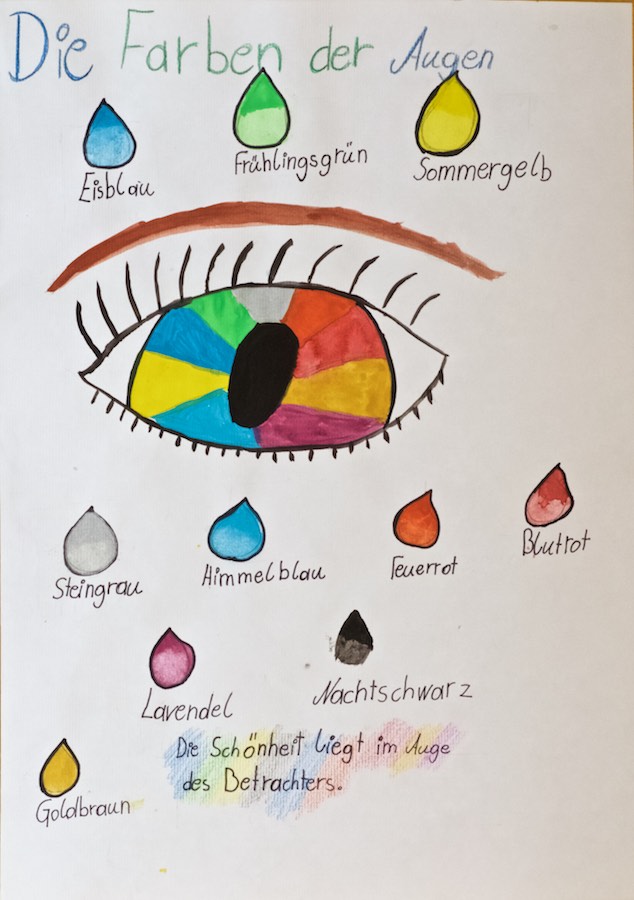 Die Farben der Augen
Eisblau
Frühlingsgrün
Sommergelb
Steingrau
Himmelblau
Feuerrot
Blutrot
Lavendel
Nachtschwarz
Die Schönheit liegt im Auge
des Betrachters.
Goldbraun